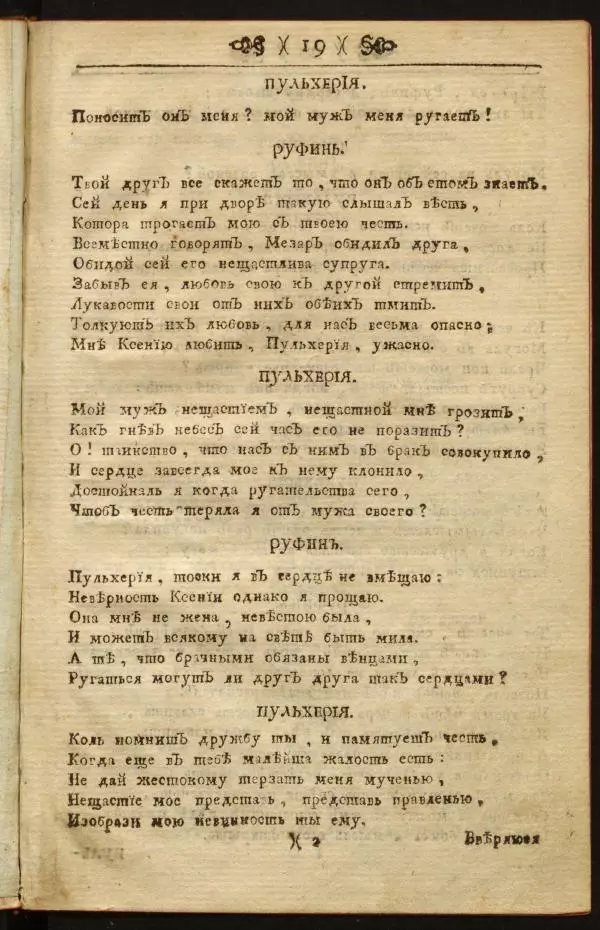 )( 19 )(
ПУЛЬХЕРІЯ.
Поноситъ онъ меня? мой мужъ меня ругаетъ!
РУФИНЪ.
Твой другъ все скажетъ то, что онъ объ етомъ знаетъ.
Сей день я при дворѣ такую слышалъ вѣсть,
Котора трогаетъ мою съ твоею честь.
Всемѣстно говорятъ, Мезаръ обидилъ друга,
Обидой сей его нещастлива супруга.
Забывъ ея, любовь свою къ другой стремитъ,
Лукавости свои отъ нихъ обѣихъ тмитъ.
Толкуютъ ихъ любовь, для насъ весьма опасно;
Мнѣ Ксенїю любить, Пульхерїя, ужасно.
ПУЛЬХЕРІЯ.
Мой мужъ нещастїемъ, нещастной мнѣ грозитъ,
Какъ гнѣвъ небесъ сей часъ его не поразитъ?
О! таинство, что насъ съ нимъ въ бракъ совокупило,
И сердце завсегда мое къ нему клонило,
Достойналь я когда ругательства сего,
Чтобъ честь теряла я отъ мужа своего?
РУФИНЪ.
Пульхерїя, тоски я въ сердцѣ не вмѣщаю:
Невѣрность Ксенїи однако я прощаю.
Она мнѣ не жена, невѣстою была,
И можетъ всякому на свѣтѣ быть мила.
А тѣ, что брачными обязаны вѣнцами,
Ругаться могутъ ли другъ друга такъ сердцами?
ПУЛЬХЕРІЯ.
Коль помнишъ дружбу ты, и памятуешъ честь,
Когда еще въ тебѣ малѣйша жалость есть:
Не дай жестокому терзать меня мученью,
Нещастїе мое представь, представь правленью,
Изобрази мою невинность ты ему.
)( 2
Ввѣряюся